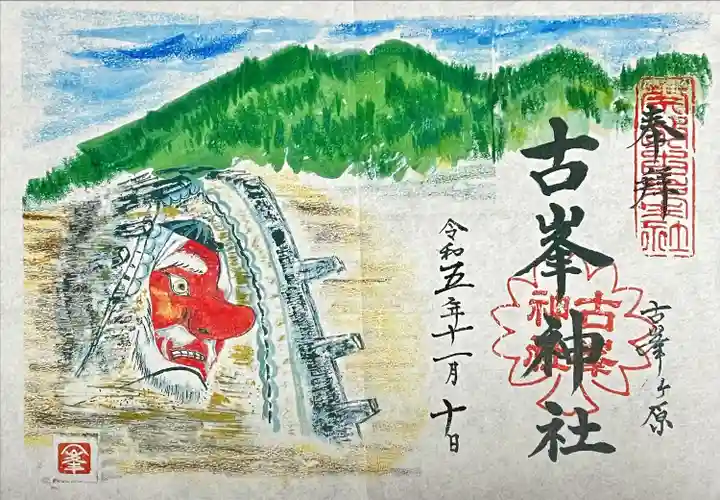 奉拝
古峯ヶ原
古峯神社
令和五年十一月十日
峯